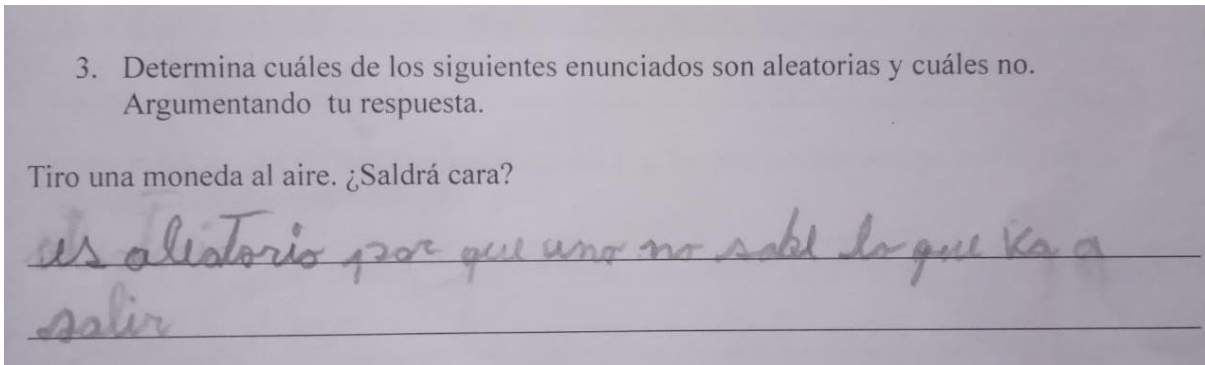 3. Determina cuáles de los siguientes enunciados son aleatorias y cuáles no.
Argumentando tu respuesta.
Tiro una moneda al aire. ¿Saldrá cara?
es aleatorio por que uno no sabe lo que va a
salir